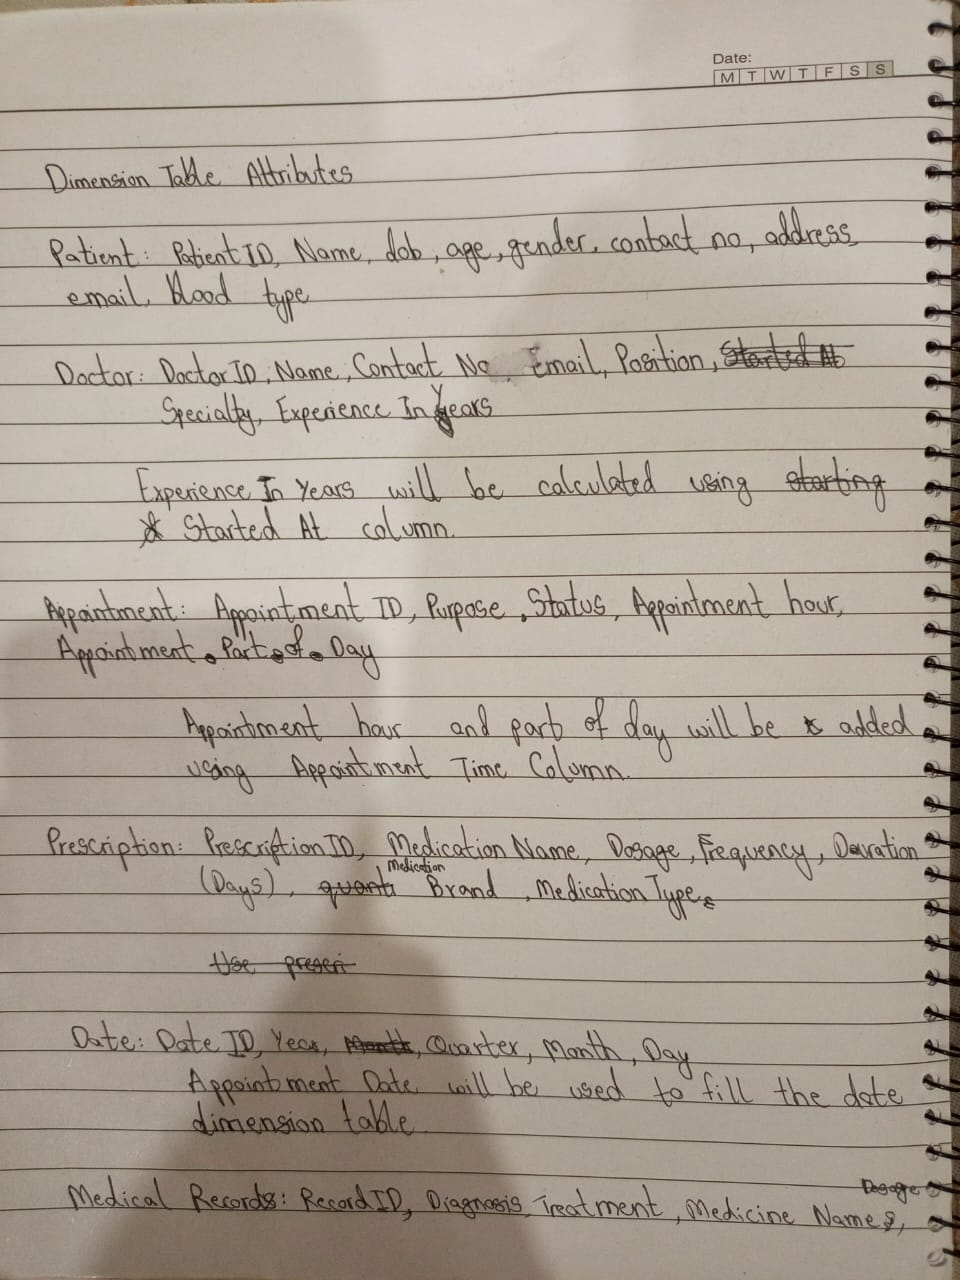 Date:
M T W T F S S
Dimension Table Attributes
Patient: Patient ID, Name, dob, age, gender, contact no, address
email, blood type
Doctor: Doctor ID, Name, Contact No, Email, Position, Started At
Specialty, Experience In Years
Experience In Years will be calculated using starting
Started At column.
Appointment: Appointment ID, Purpose, Status, Appointment hour,
Appointment Part of Day
Appointment hour and part of day will be added
using Appointment Time Column.
Prescription: Prescription ID, Medication Name, Dosage, Frequency, Duration
Medication
(Days), quanti Brand, Medication Type
Use prescri
Date: Date ID, Year, Month, Quarter, Month, Day
Appointment Date will be used to fill the date
dimension table.
Dosage
Medical Records: Record ID, Diagnosis, Treatment, Medicine Name,